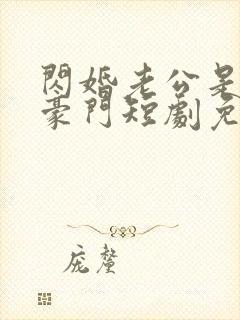 閃婚老公是
豪門短劇免
庞釐